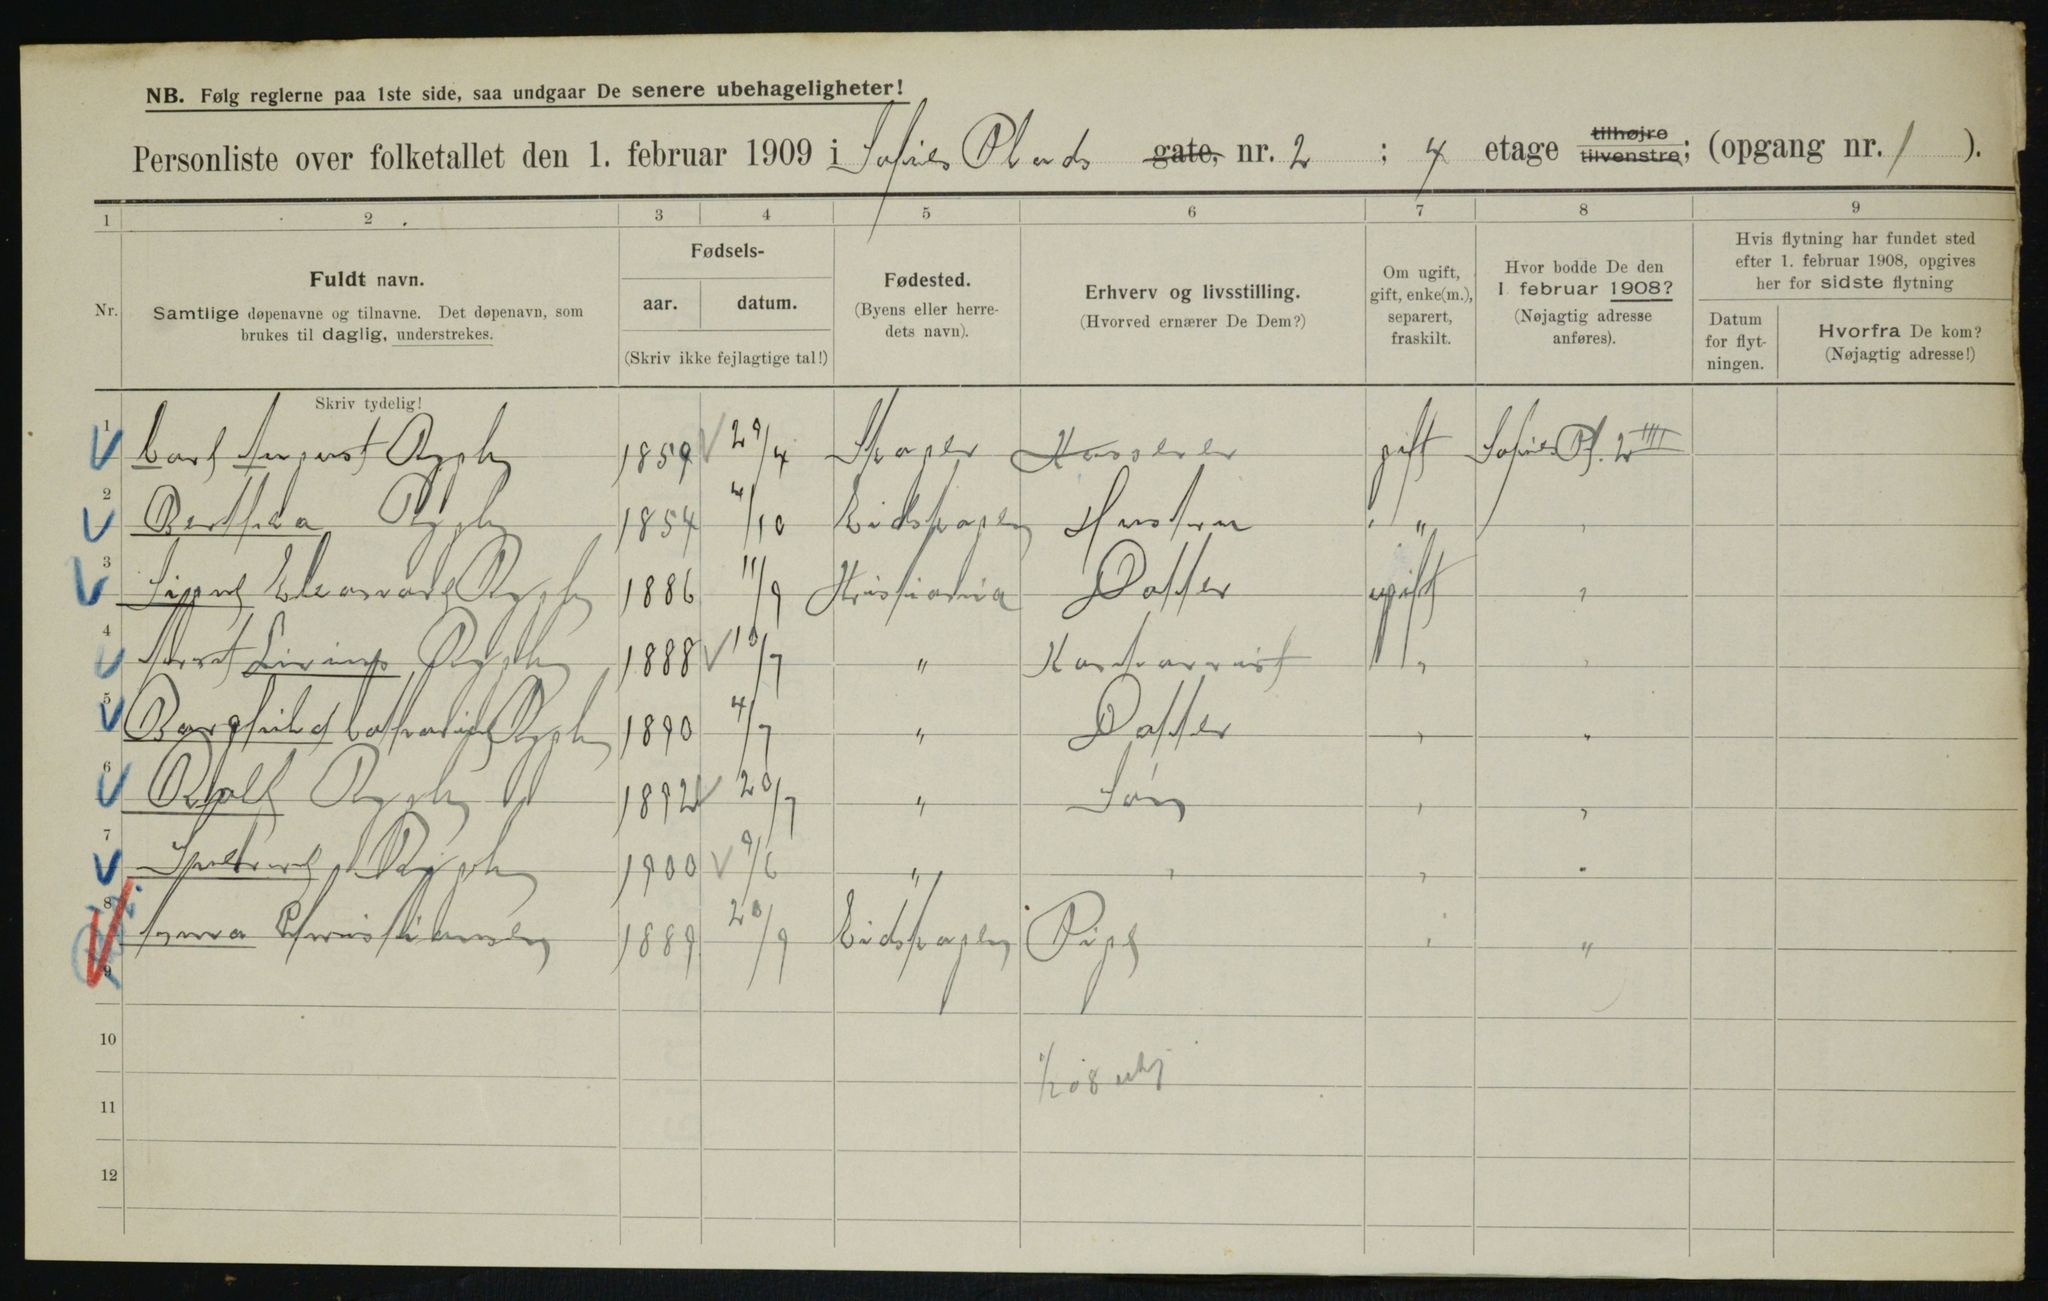 NB. Følg reglerne paa 1ste side, saa undgaar De senere ubehageligheter!
Personliste over folketallet den 1. februar 1909 i Sofies Plads gate, nr. 2 ; 4 etage tilhøjre tilvenstre; (opgang nr. 1 ).
1 2 3 4 5 6 7 8 9
Nr.
Fuldt navn.
Samtlige døpenavne og tilnavne. Det døpenavn, som
brukes til daglig, understrekes.
Fødsels-
aar.
datum.
(Skriv ikke fejlagtige tal!)
Fødested.
(Byens eller herre-
dets navn).
Erhverv og livsstilling.
(Hvorved ernærer De Dem?)
Om ugift,
gift, enke(m.),
separert,
fraskilt.
Hvor bodde De den
1. februar 1908?
(Nøjagtig adresse
anføres).
Hvis flytning har fundet sted
efter 1. februar 1908, opgives
her for sidste flytning
Datum
for flyt-
ningen.
Hvorfra De kom?
(Nøjagtig adresse!)
Skriv tydelig!
1 Carl August 1859 29/4 Kasserer gift Sofies Pl. 2 IIII
2 Berthea 1854 4/10 Eidskogen Hustru " "
3 1886 11/9 Kristiania Datter ugift "
4 1888 18/7 " Kontorist " "
5 Borghild 1890 4/7 " Datter " "
6 Rolf 1892 20/7 " Søn " "
7 1900 9/6 " " " "
8 Christiansen 1889 20/9 Eidskogen Pige " "
9
10
1/2 08
11
12